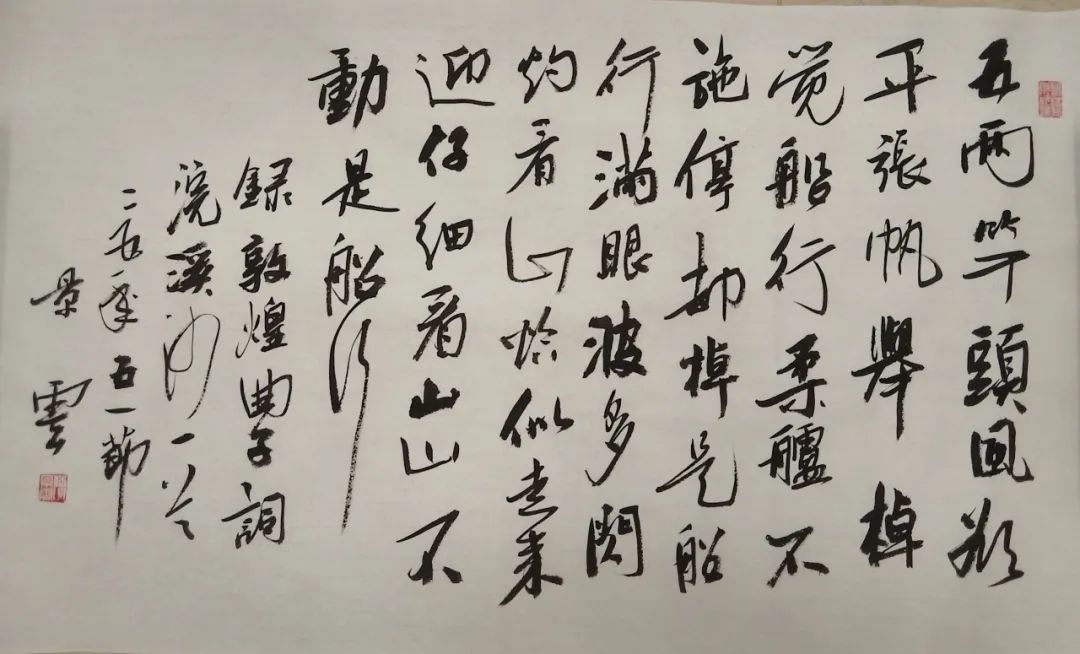 五兩竿頭風欲
平張帆舉棹
觉船行柔艫不
施停却棹是船
行滿眼波多閃
灼看山恰似走来
迎仔细看山山不
動是船行
録敦煌曲子詞
浣溪沙一首
二五年五一節
景雲